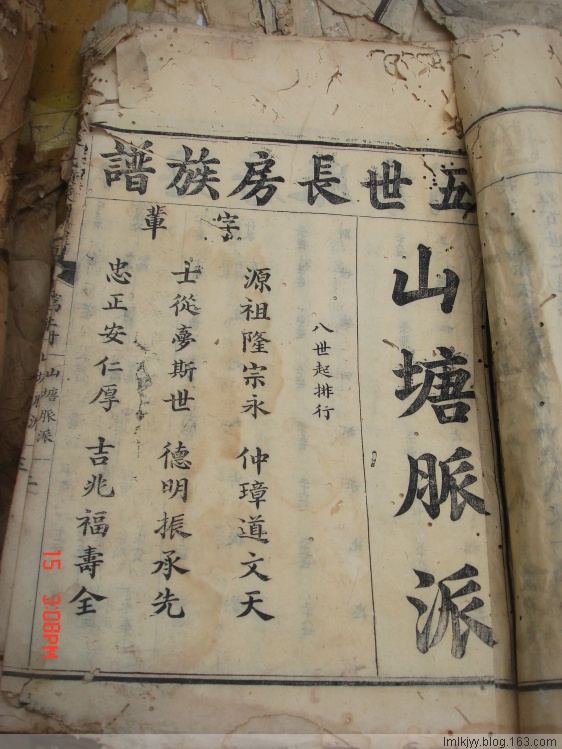 五世長房族譜
山塘脈派
字輩
八世起排行
源祖隆宗永 仲璋道文天
士從夢斯世 德明振承先
忠正安仁厚 吉兆福壽全
山塘脈派
15 3:08PM
lmlkjyy.blog.163.com